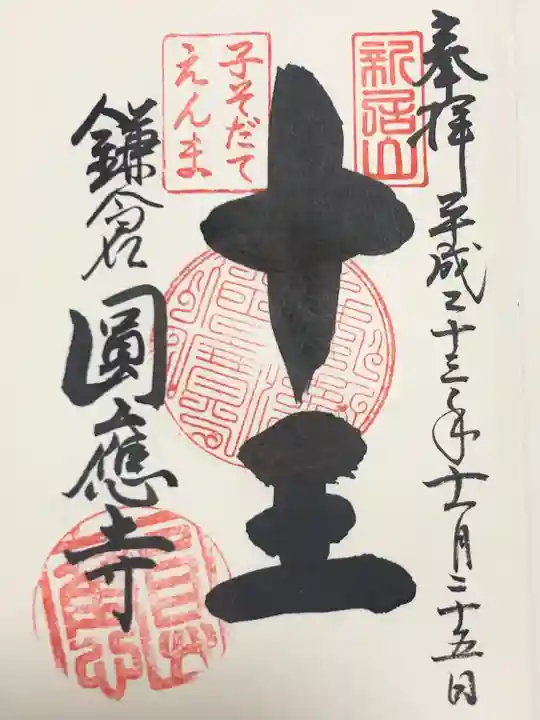 奉拝 平成二十三年十一月二十五日
新居山
十王
子そだて
えんま
鎌倉 圓應寺